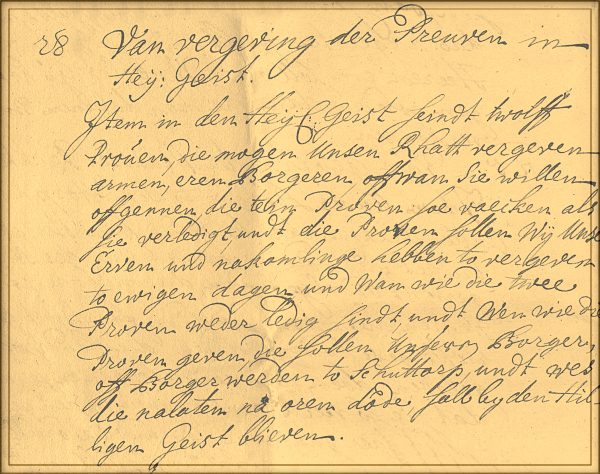 28 Van vergeving der Preuven in
Heij: Geist.
Item in den Heij: Geist seindt twolff
Proven, die mogen Unsen Rhatt vergeven
armen, eren Borgeren off wan Sie willen
offgennen, die tein Proven soe vaecken als
sie verledigt, undt die Proven sollen Wij Unse
Erven und nakomlinge hebben to vergeven
to ewigen dagen, und Wan wie die twee
Proven weder ledig sindt, undt Wen wie die
Proven geven, die sollen Unsern Borger,
off Borger werden to Schuttorp, undt wes
die nalaten na oren dode sall by den Hil-
ligen Geist blieven.